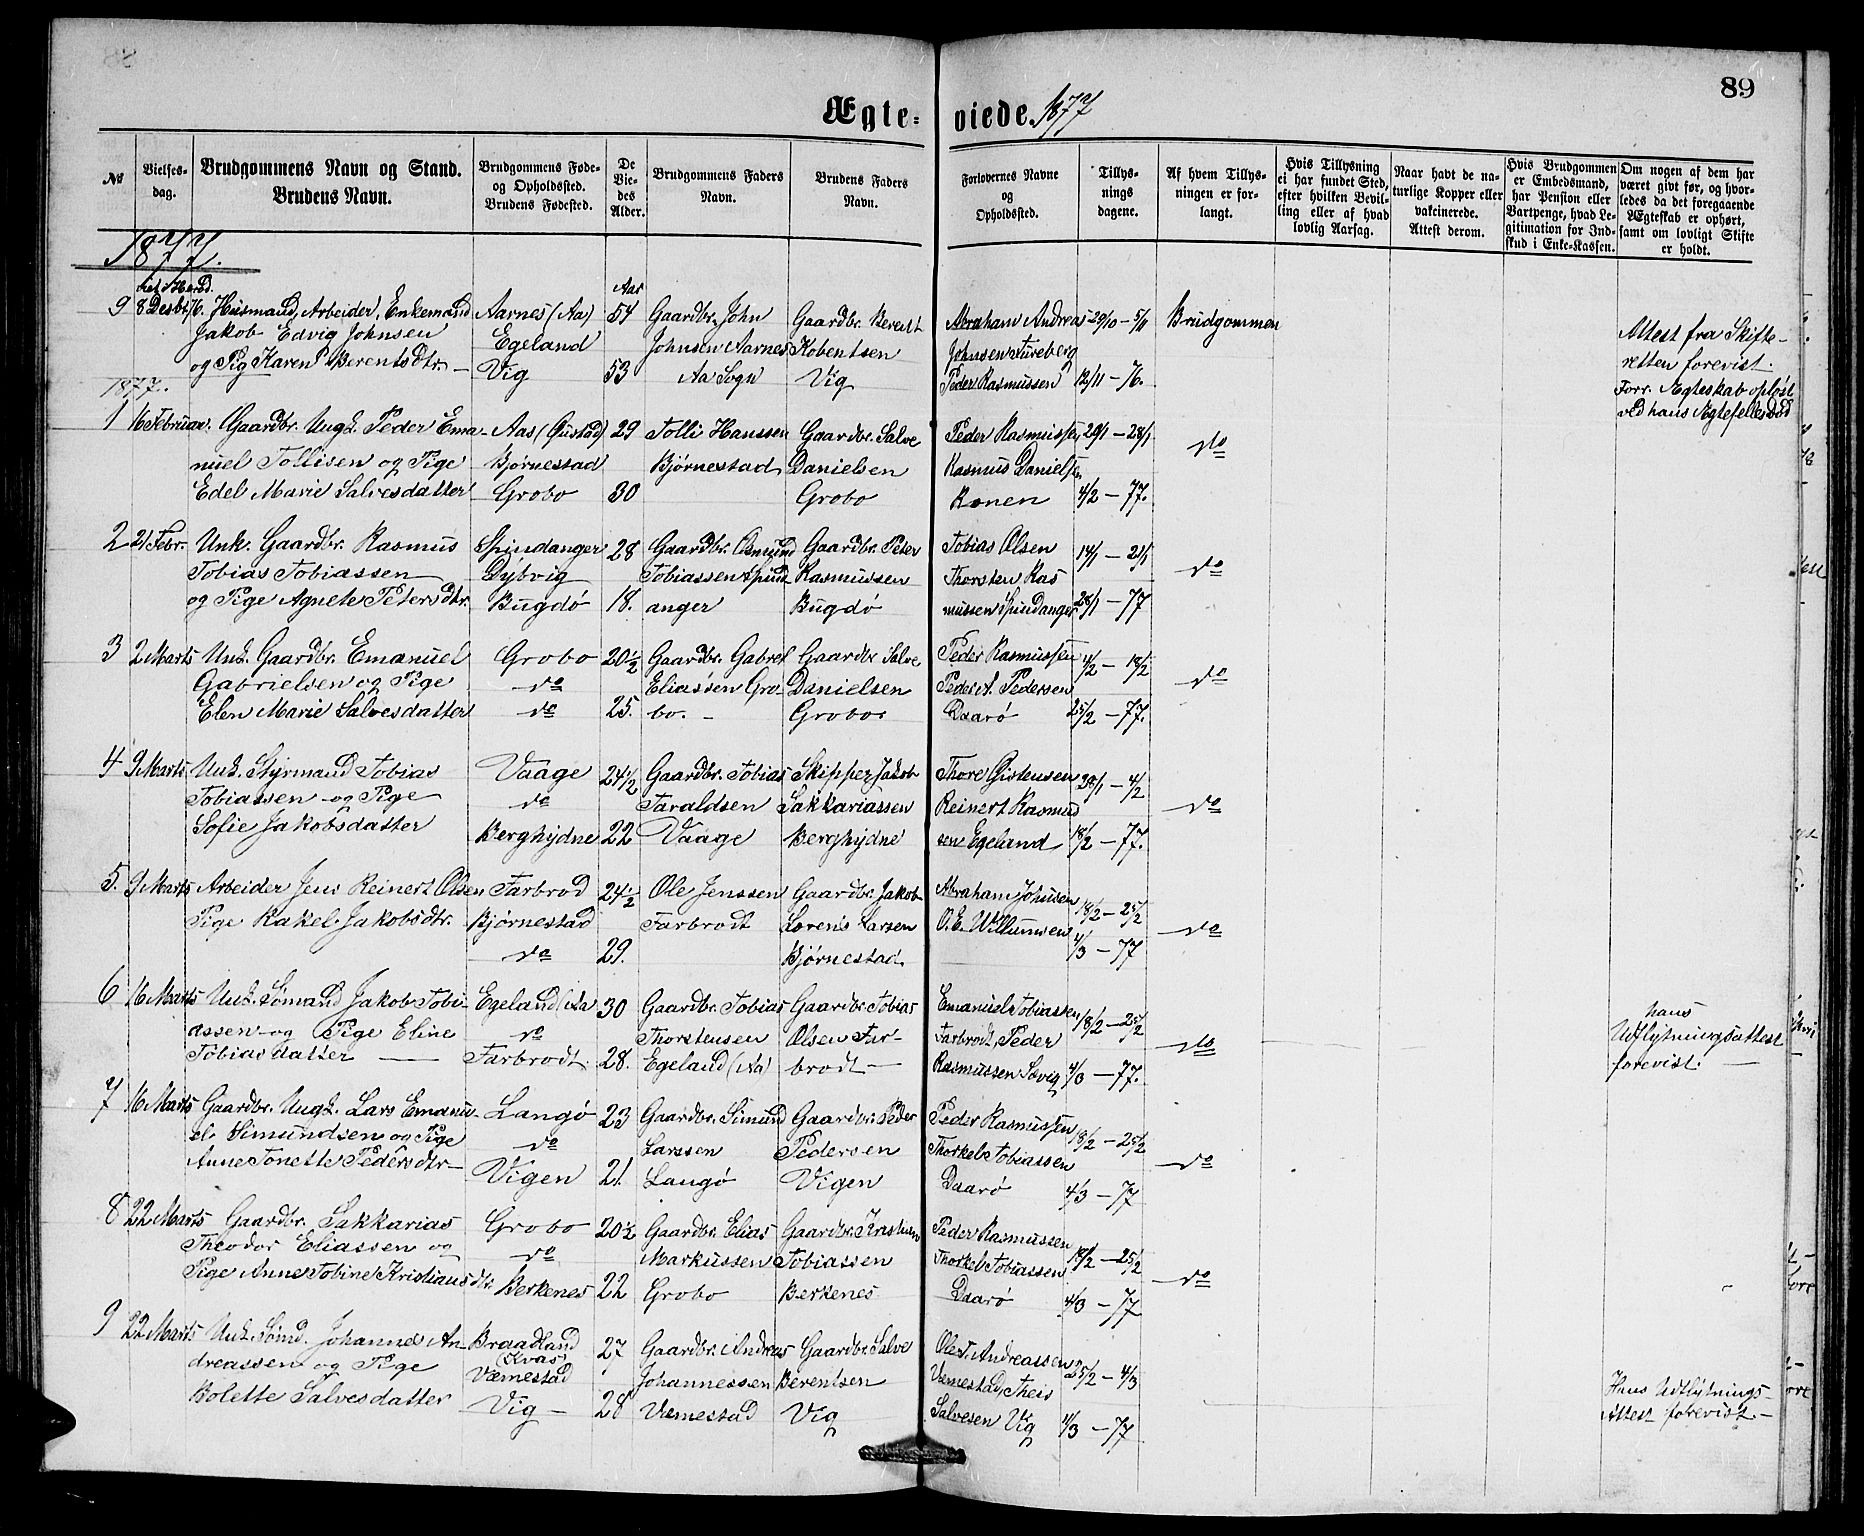 89
Ægte-viede. 1877
№
Vielses-dag.
Brudgommens Navn og Stand.
Brudens Navn.
Brudgommens Føde-
og Opholdssted.
Brudens Fødested.
De Vie-des Alder.
Brudgommens Faders
Navn.
Brudens Faders
Navn.
Forlovernes Navne
og
Opholdssted.
Tillys-
nings
dagene.
Af hvem Tillys-
ningen er for-
langt.
Hvis Tillysning
ei har fundet Sted,
efter hvilken Bevil-
ling eller af hvad
lovlig Aarsag.
Naar havt de na-
turlige Kopper eller
vakcinerede.
Attest derom.
Hvis Brudgommen
er Embedsmand,
har Pension eller
Vartpenge, hvad Le-
gitimation for Ind-
skud i Enke-Kassen.
Om nogen af dem har
været givt før, og hvor-
ledes da det foregaaende
Ægteskab er ophørt,
samt om lovligt Skifte
er holdt.
1877.
Aar
9 8 Desbr 76. Husmand, Arbeider, Enkemand Aarnes (Aa) 54 Gaardbr. John Gaardbr. Berent Abraham Andreas 29/10 – 5/11 Brudgommen
Jakob Edvig Johnsen Egeland Johnsen Aarnes Kobentsen Johnsen Tureberg Attest fra Skifte-
og Pig Karen Berentsdtr. Vig 53 Aa Sogn Vig Peder Rasmussen 12/11 – 76. retten forevist.
Forr. Ægteskab opløst
ved hans Ægtefelles død
1877.
1 16 Februar. Gaardbr. Ungk. Peder Ema- Aas (Qustad) 29 Tolli Hanssen Gaardbr. Salve Peder Rasmussen 20/1 – 28/1 do
nuel Tollisen og Pige Bjørnestad Bjørnestad Danielsen Rasmus Danielsen
Edel Marie Salvesdatter Grobo 30 Grobo Ronen 4/2 – 77.
2 21 Febr. Unk. Gaardbr. Rasmus Spindanger 28 Gaardbr. Osmund Gaardbr. Peter Tobias Olsen 14/1 – 21/1 do
Tobias Tobiassen Dybvig Tobiassen Spind Rasmussen Thorsten Ras
og Pige Agnete Petersdtr. Bugdø 18. anger Bugdø mussen Spindanger 28/1 – 77
3 2 Marts Unk. Gaardbr. Emanuel Grobo 20 1/2 Gaardbr. Gabriel Gaardbr Salve Peder Rasmussen 4/2 – 18/2 do
Gabrielsen og Pige do Eliassen Gro Danielsen Peder A. Pedersen
Elen Marie Salvesdatter do 25. bo. – Grobo. Daarø 25/2 – 77.
4 9 Marts Unk. Styrmand Tobias Vaage 24 1/2 Gaardbr. Tobias Skipper Jakob Thore Qistensen 28/1 – 4/2 do
Tobiassen og Pige do Taraldsen Sakkariassen Reinert Rasmus
Sofie Jakobsdatter Berghydne 22 Vaage Berghydne sen Egeland 18/2 – 77.
5. 9 Marts Arbeider Jens Reinert Olsen Farbrod 24 1/2 Ole Jenssen Gaardbr. Jakob Abraham Johnsen 18/2 – 25/2 do
Pige Rakel Jakobsdtr. Bjørnestad Farbrodt Lorens Larsen O. E. Willumsen
do 29. Bjørnestad 4/3 – 77
6 16 Marts Unk. Sømand Jakob Tobi- Egeland (Aa 30 Gaardbr. Tobias Gaardbr. Tobias Emanuel Tobiassen 18/2 – 25/2 do hans
assen og Pige Eline do Thorstensen Olsen Far- Farbrodt, Peder Udflytningsattest
Tobiasdatter Farbrodt. 28. Egeland (Aa) brodt Rasmussen Sævig 4/3 – 77. forevist.
7 16 Marts Gaardbr. Ungk. Lars Emanu- Langø 23 Gaardbr. Simund Gaardbr. Peder Peder Rasmussen 18/2 – 25/2 do
el Simundsen og Pige do Larssen Pedersen Thorkel Tobiassen
Anne Tonette Pedersdtr Vigen 21. Langø Vigen Daarø 4/3 – 77
8 22 Marts Gaardbr. Sakkarias Grobo 20 1/2 Gaardbr. Elias Gaardbr. Kristian Peder Rasmussen 18/2 – 25/2 do
Theodor Eliassen og do Markussen Tobiassen Thorkel Tobiassen
Pige Anne Tobine Kristiansdtr. Berkenes 22 Grobo Berkenes Daarø 4/3 – 77
9 22 Marts Unk. Sømd. Johannes An- Braadland (Kvas) 27 Gaardbr. Andreas Gaardbr. Salve Ole T. Andreassen 25/2 – 4/3
dreassen og Pige Væmestad Johannessen Berentsen Væmestad, Theis Hans Udflytnings-
Bolette Salvesdatter Vig – 28 Væmestad Vig Salvesen Vig 11/3 – 77 Attest forevist. –